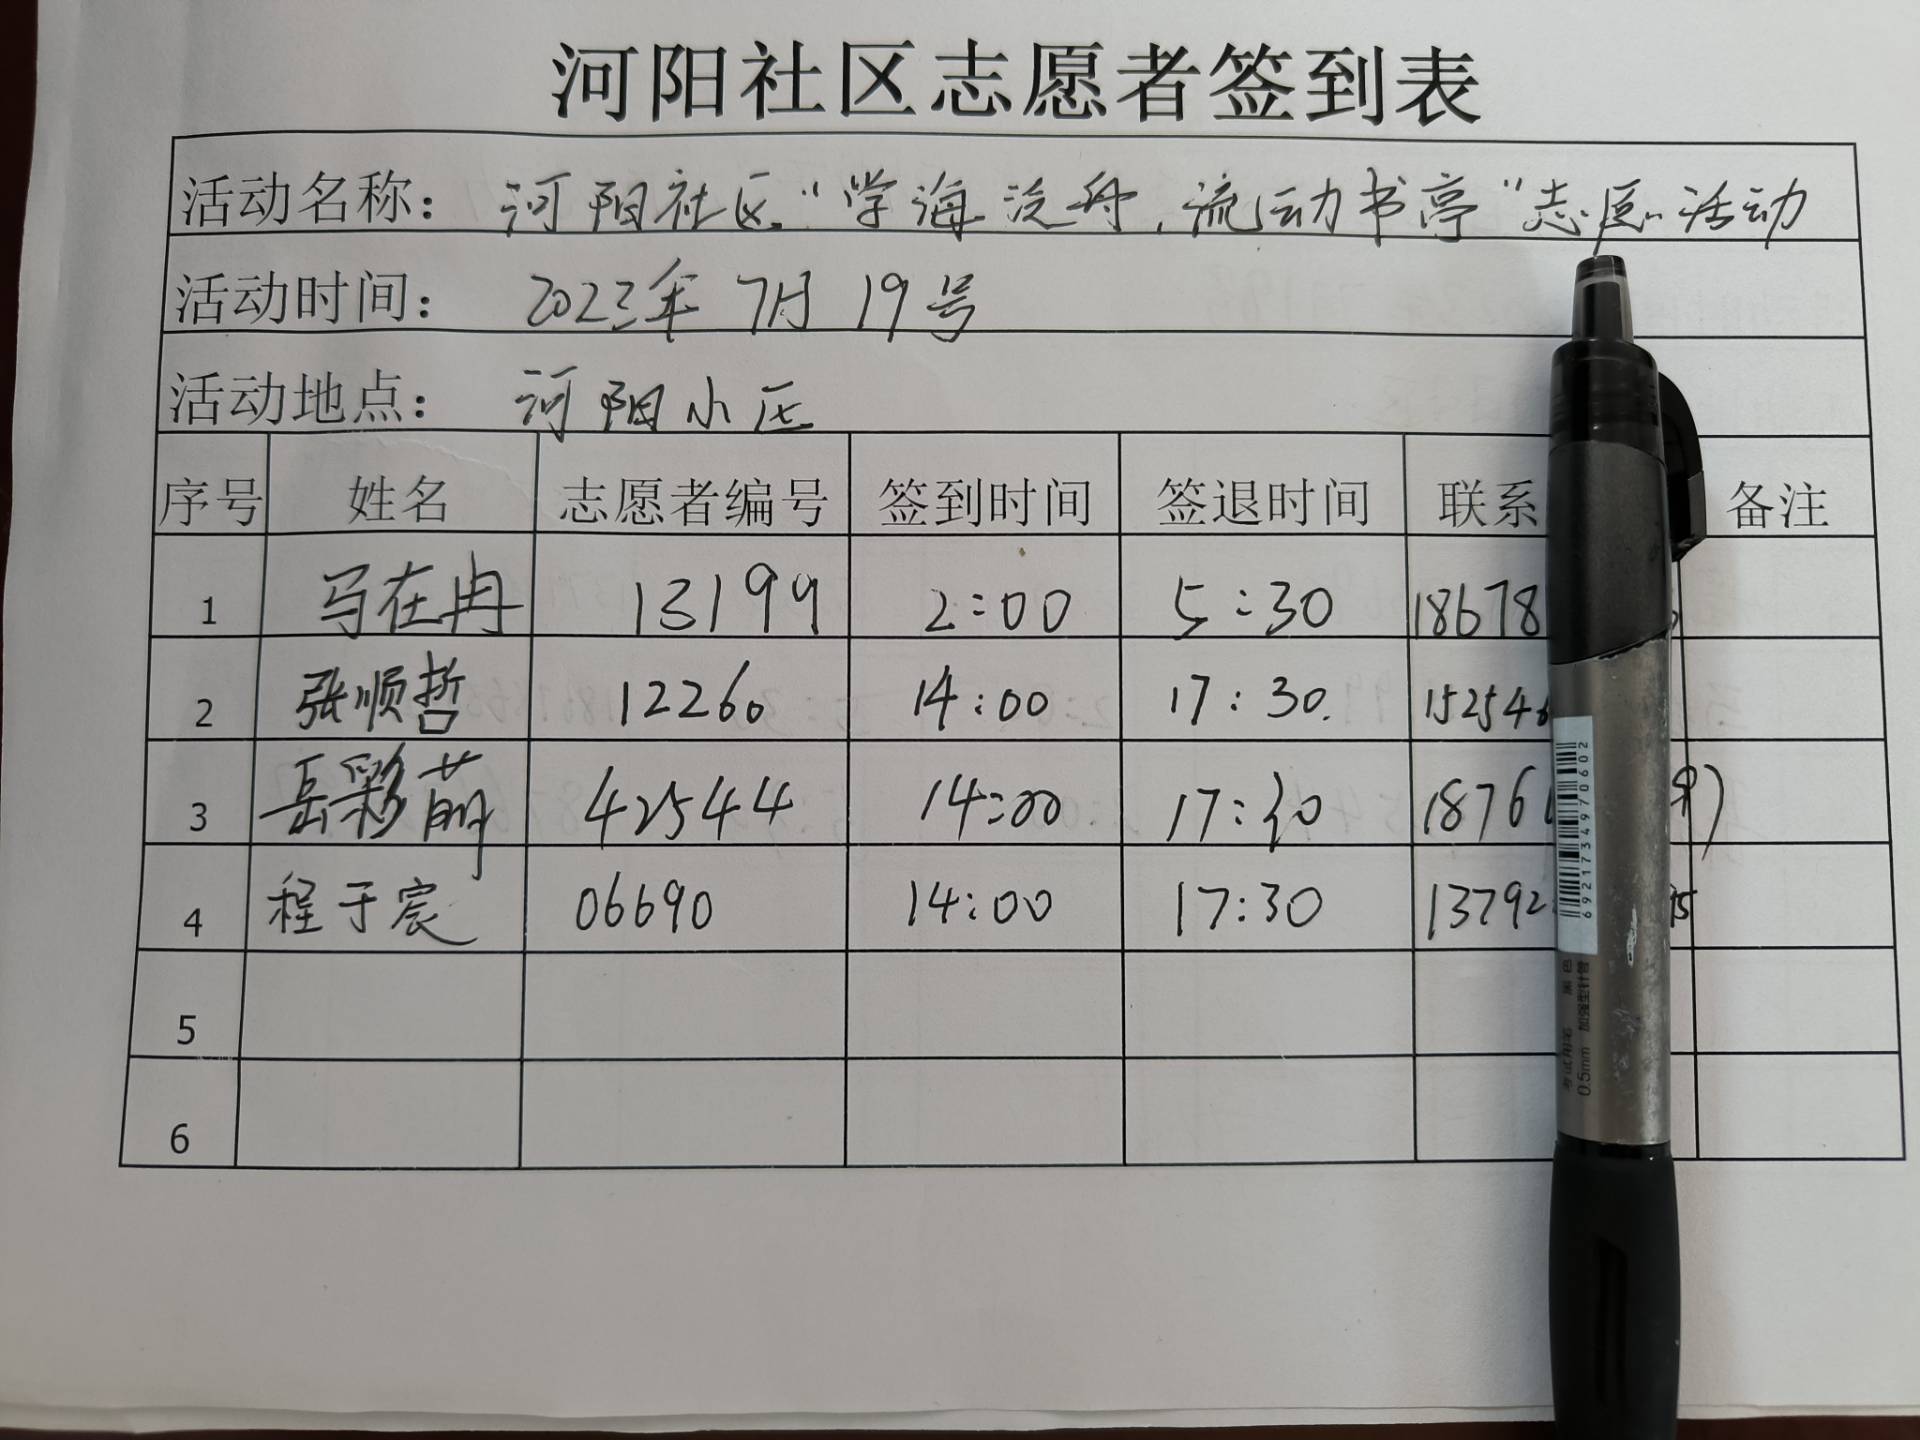 河阳社区志愿者签到表
活动名称： 河阳社区“学海泛舟，流动书亭”志愿活动
活动时间： 2023年7月19号
活动地点： 河阳小区
序号 姓名 志愿者编号 签到时间 签退时间 联系 备注
1 马在冉 13199 2:00 5:30 18678
2 张顺哲 12260 14:00 17:30. 15254
3 岳彩萌 42544 14:00 17:30 1876
4 程于宸 06690 14:00 17:30 13792
5
6
6921734970602
考试用笔 黑色
0.5mm 加强型针管